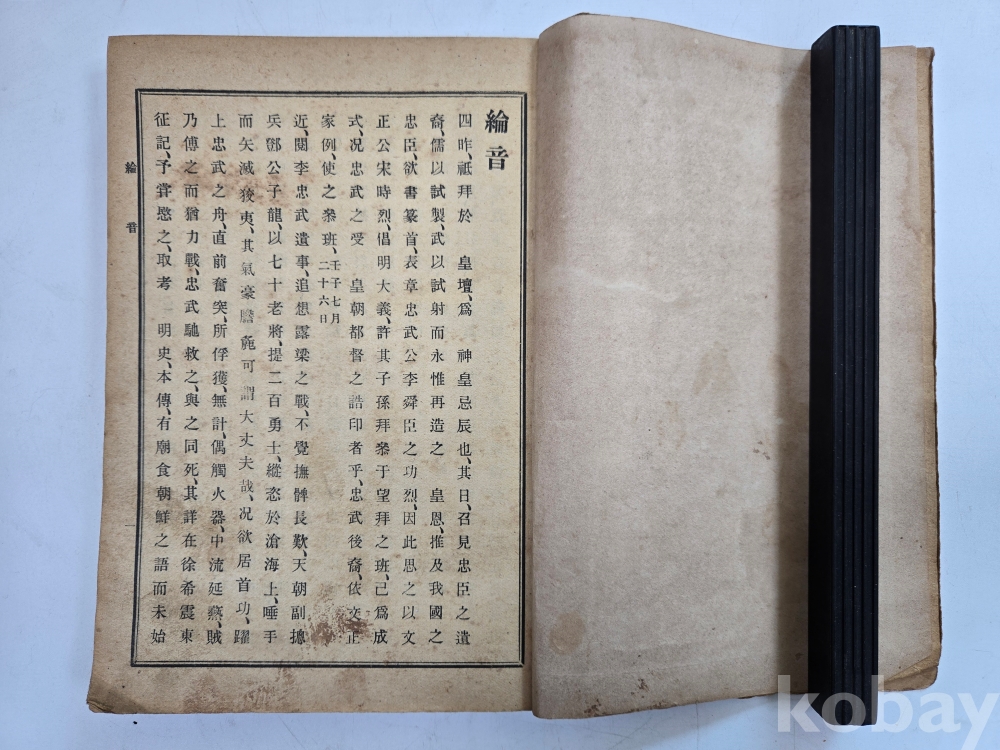 綸音
四昨、祗拜於　皇壇、爲　神皇忌辰也、其日、召見忠臣之遺
裔、儒以試製、武以試射而永惟再造之　皇恩、推及我國之
忠臣、欲書篆首、表章忠武公李舜臣之功烈、因此思之以文
正公宋時烈、倡明大義、許其子孫拜參于望拜之班、己爲成
式、况忠武之受　皇朝都督之誥印者乎、忠武後裔、依文正
家例、使之參班、壬子七月二十六日
近、閱李忠武遺事、追想露梁之戰、不覺撫髀長歎、天朝副摠
兵鄧公子龍、以七十老將、提二百勇士、縱恣於滄海上、唾手
而矢滅狡夷、其氣豪膽麄可謂大丈夫哉、况欲居首功、躍
上忠武之舟、直前奮突、所俘獲、無計、偶觸火器、中流延爇、賊
乃傅之而猶力戰、忠武馳救之、與之同死、其詳在徐希震東
征記、予甞愍之、取考　明史、本傳、有廟食朝鮮之語而未始
綸音
一
kobay